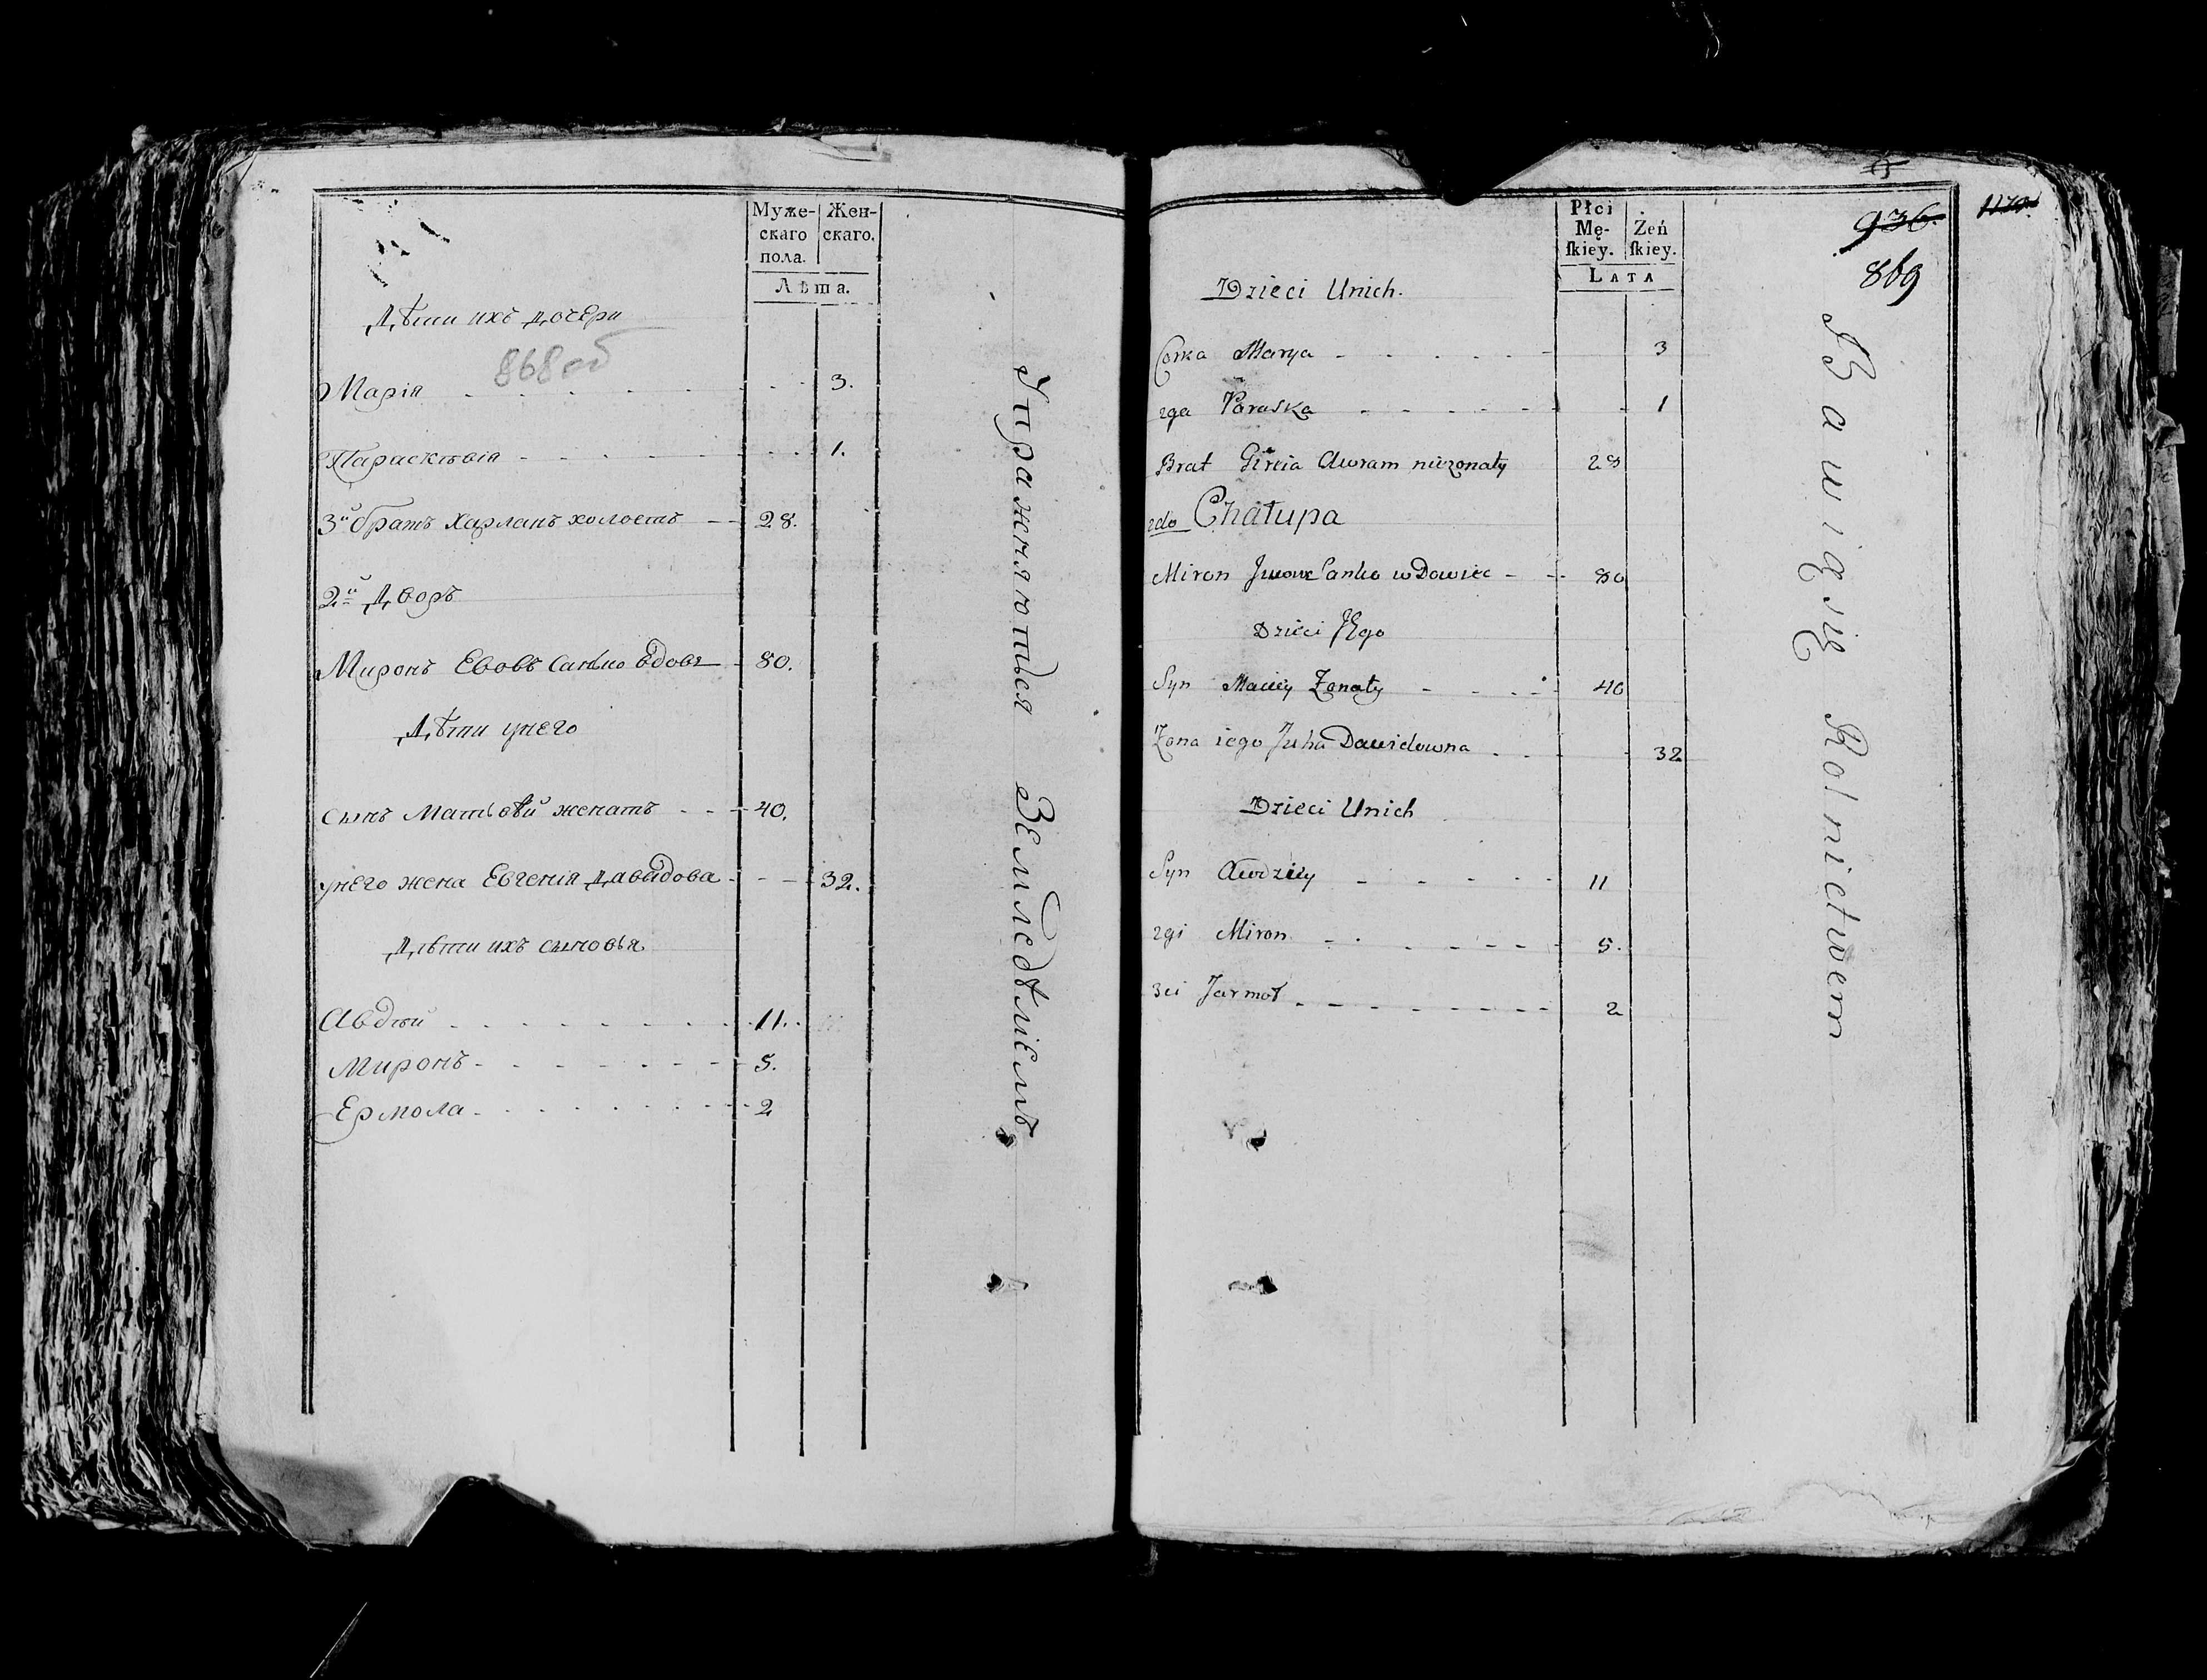 Муже-
скаго
пола.
Жен-
скаго.
Лѣта.
Дѣти ихъ дочери
868об
Марія 3.
Параскѣвія 1.
3й братъ Харланъ холостъ 28.
2й Дворъ
Миронъ Евовъ Санько вдовъ 80.
Дѣти унего
сынъ Матьвѣй женатъ 40.
унего жена Евгенія Давыдова 32.
Дѣти ихъ сыновья
Авдѣй 11.
Миронъ 5.
Ермола 2
Упражняються Земледѣліемъ
Płci
Mę-
ſkiey.
Żeń
ſkiey.
LATA
936.
869
Dzieci Unich.
Corka Marya 3
2ga Paraska 1
Brat Awram nieżonaty 28
2da Chałupa
Miron Sanko wDowiec 80
Dzieci JEgo
Syn Maciey Żonaty 40
Żona iego Juha Dawidowna 32
Dzieci Unich
Syn Awdziey 11
2gi Miron 5.
3ci Jarmoł 2
Bawią się Rolnictwem